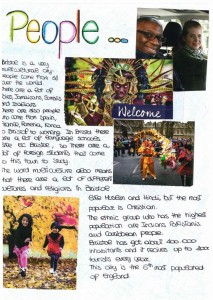 People ...
Bristol is a very
multicultural city.
People come from all
over the world.
There are a lot of
Jamaicans, Somalis
and
There are also people
who come from Spain,
France, Romania,
to Bristol to working. In Bristol there
are a lot of language schools,
like EC Bristol, so there are a
lot of foreign students that come
to this town to study.
The word multiculture also means
that there are a lot of different
cultures and religions in Bristol:
Welcome
and Hindu, but the most
popular is Christian.
The ethnic group who has the highest
population are Indians, Pakistanis
and Caribbean people.
Bristol has got about 400.000
inhabitants and it recives up to
tourists every year.
This city is the 6th most populated
of England.